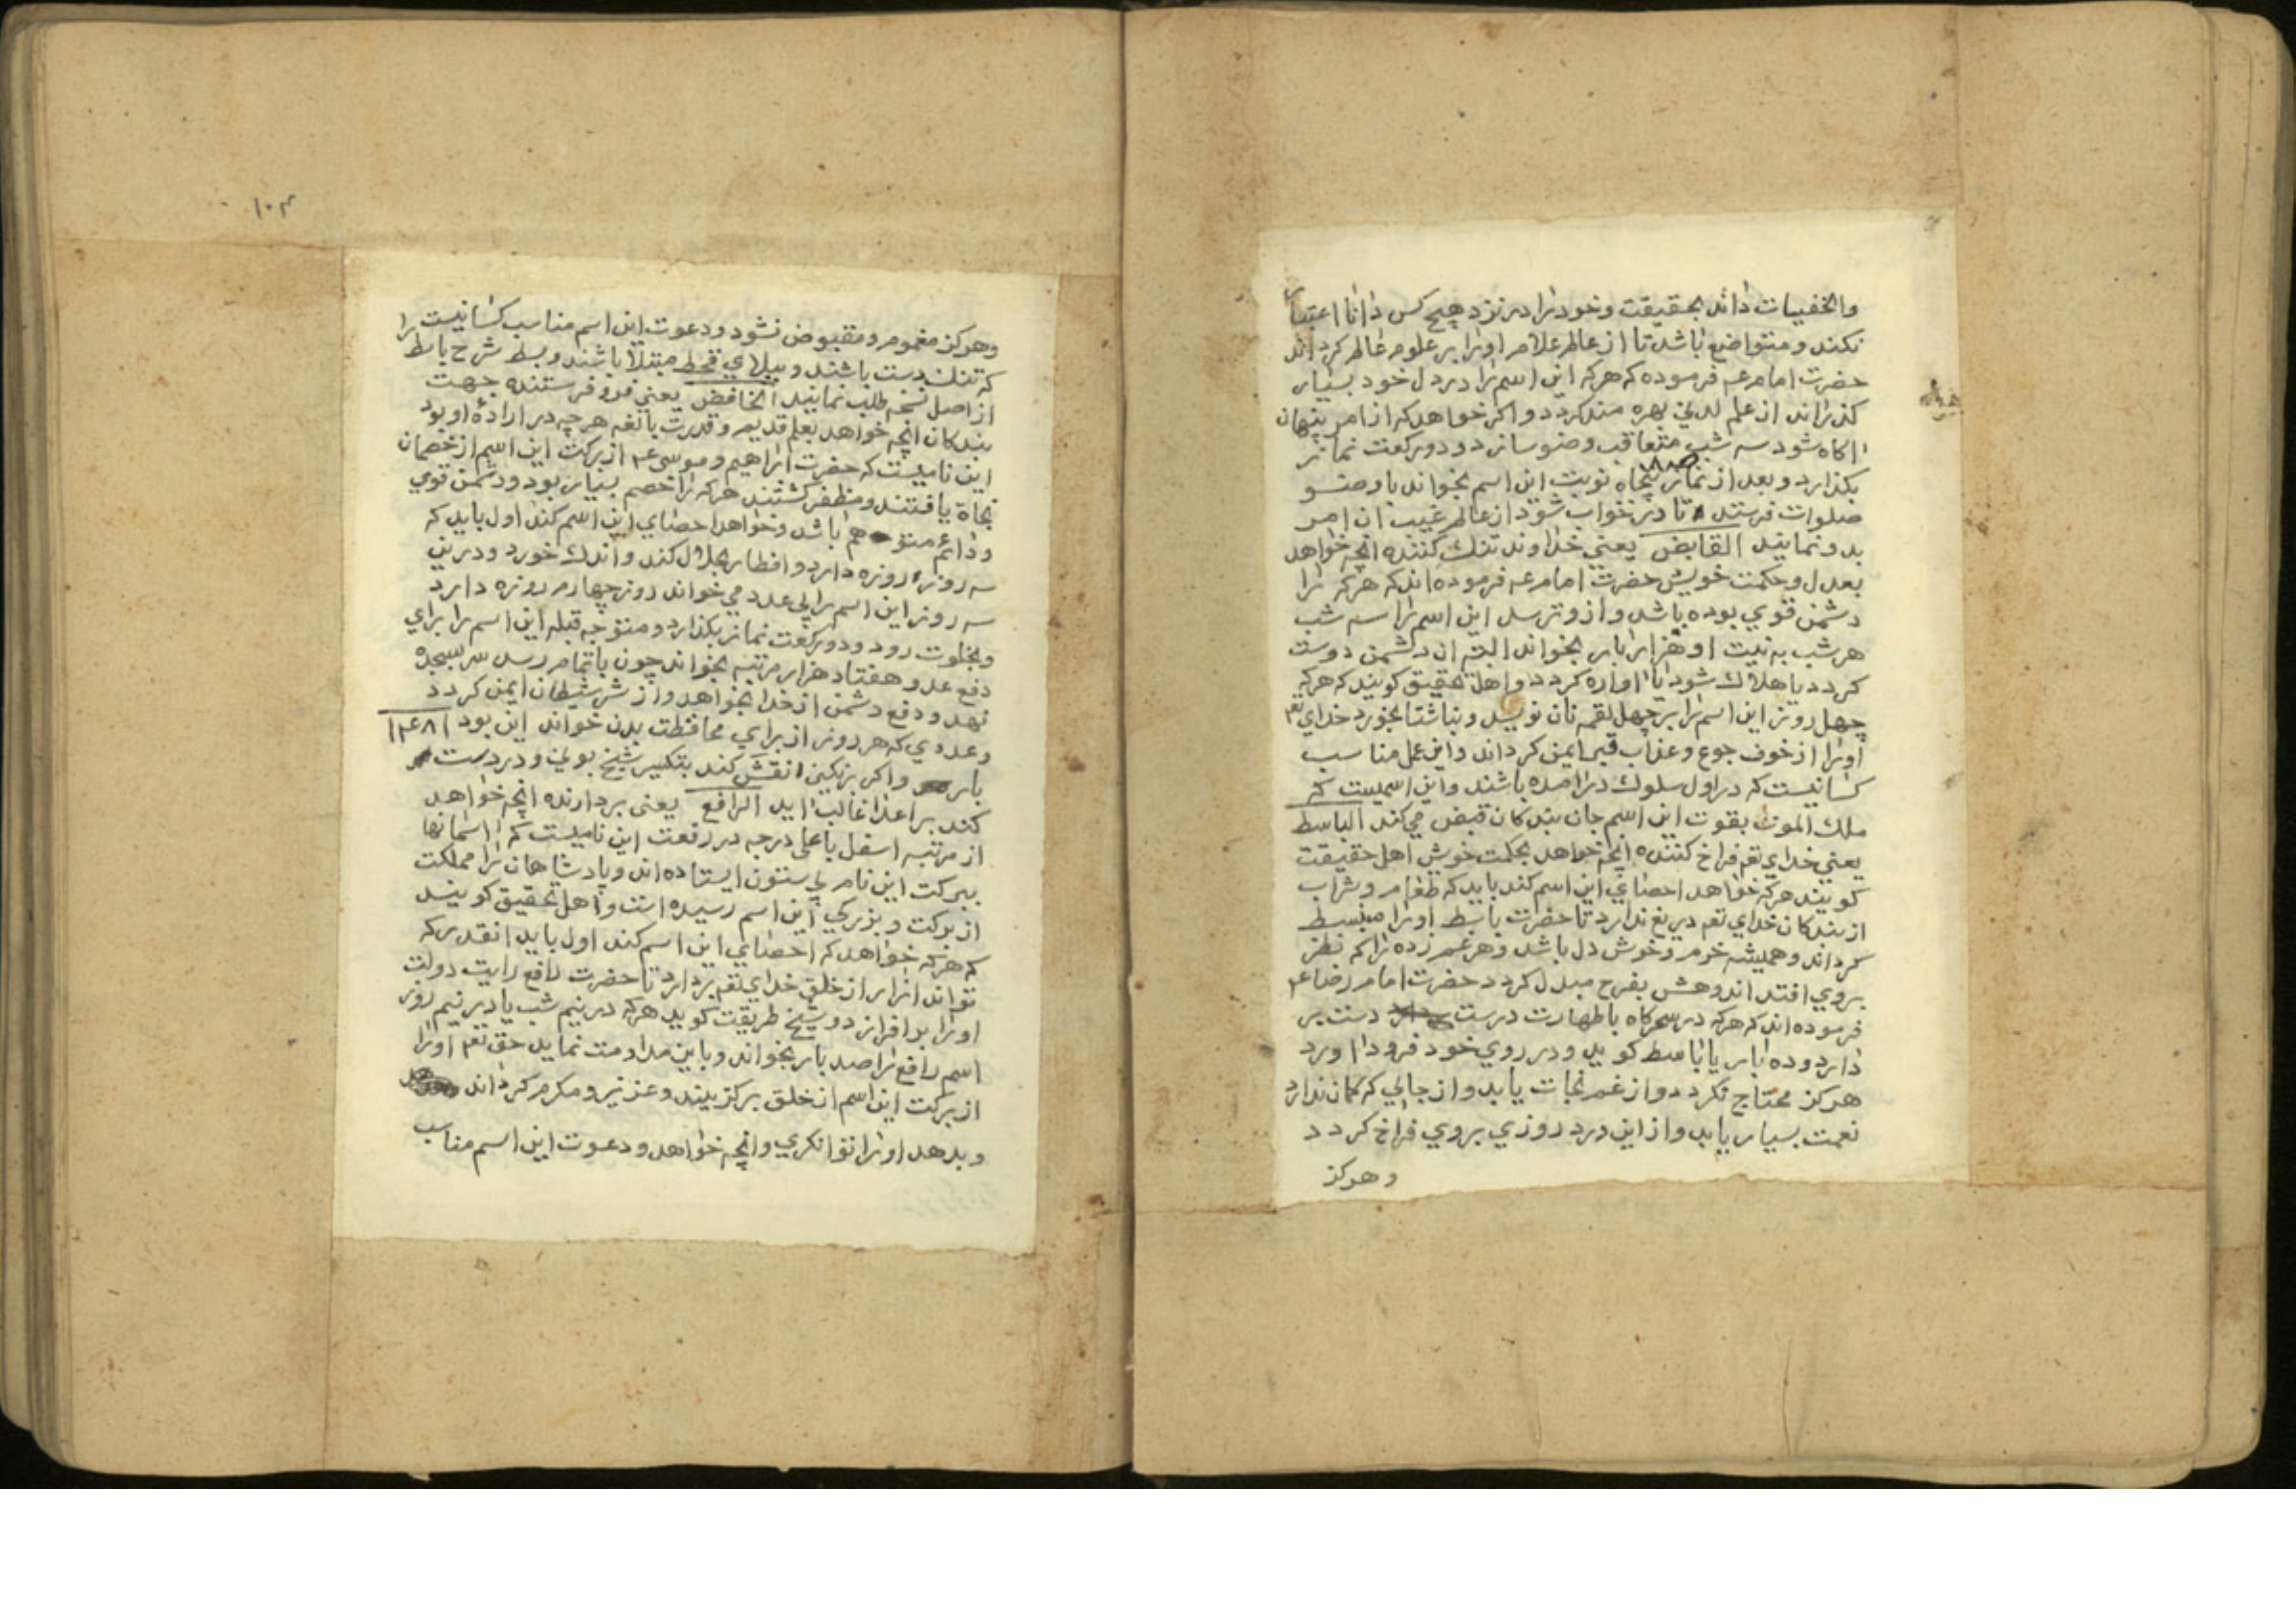 والخفیات داند بحقیقت و خود را در نزد هیچ کس دانا اعتبار
نکند و متواضع باشد تا از عالم علام او را بر علوم عالم کرداند
حضرت امام عم فرموده که هرکه این اسم را در دل خود بسیار
کذراند از علم لدنی بهره مند کردد و اکر خواهد که از امر پنهان
اکاه شود سه شب متعاقب وضو سازد و دو رکعت نماز
بکذارد و بعد از نماز پنجاه نوبت این اسم بخواند با وضو
صلوات فرستد تا در خواب شود از عالم غیب ان امر
بدو نمایند القابض یعنی خداوند تنک کننده انچه خواهد
بعدل و حکمت خویش حضرت امام عم فرموده اند که هرکه را
دشمن قوی بوده باشد و ازو ترسد این اسم را سه شب
هر شب به نیت او هزار بار بخواند البته ان دشمن دوست
کردد یا هلاک شود یا اواره کردد و اهل تحقیق کویند که هرکه
چهل روز این اسم را بر چهل لقمه نان نویسد و بناشتا بخورد خدای تعم
او را از خوف جوع و عذاب قبر ایمن کرداند و این عمل مناسب
کسانیست که در اول سلوک در امده باشند و این اسمیست که
ملک الموت بقوت این اسم جان بندکان قبض می کند الباسط
یعنی خدای تعم فراخ کننده انچه خواهد بحکمت خویش اهل حقیقت
کویند هرکه خواهد احصای این اسم کند باید که طعام و شراب
از بندکان خدای تعم دریغ ندارد تا حضرت باسط او را منبسط
کرداند و همیشه خرم و خوش دل باشد و هر غم زده را که نظر
بروی افتد اندوهش بفرح مبدل کردد حضرت امام رضا عم
فرموده اند که هرکه در سحرکاه با طهارت درست دست بر
دارد و ده بار یا باسط کوید و در روی خود فرود اورد
هرکز محتاج نکردد و از غم نجات یابد و از جایی که کمان ندارد
نعمت بسیار یابد و از این درد روزی بروی فراخ کردد
و هرکز
۱۰۳
و هرکز مغموم و مقبوض نشود و دعوت این اسم مناسب کسانیست را
که تنک دست باشند و ببلای قحط مبتلا باشند و بسط شرح باسط
از اصل نسخه طلب نمایند الخافض یعنی فرو فرستنده جهت
بندکان انچه خواهد بعلم قدیم و قدرت بالغه هرچه در اراده او بود
این نامیست که حضرت ابراهیم و موسی عم از برکت این اسم از خصمان
نجاة یافتند و مظفر کشتند هرکه را خصم بسیار بود و دشمن قوی
و دائم متوهم باشد و خواهد احصای این اسم کند اول باید که
سه روز روزه دارد و افطار بحلال کند و اندک خورد و درین
سه روز این اسم را بی عدد می خواند روز چهارم روزه دارد
و بخلوت رود و دو رکعت نماز بکذارد و متوجه قبله این اسم را برای
دفع عدو هفتاد هزار مرتبه بخواند چون باتمام رسد سر بسجده
نهد و دفع دشمن از خدا بخواهد و از شر شیطان ایمن کردد
و عددی که هر روز از برای محافظت بدن خواند این بود ۱۴۸۱
بار و اکر بر نکین نقش کند بتکسیر شیخ بونی و در دست
کند بر اعدا غالب اید الرافع یعنی بردارنده انچه خواهد
از مرتبه اسفل باعلی درجه در رفعت این نامیست که اسمانها
ببرکت این نام بی ستون ایستاده اند و پادشاهان را مملکت
از برکت و بزرکی این اسم رسیده است و اهل تحقیق کویند
که هرکه خواهد که احصای این اسم کند اول باید انقدر که
تواند ازار از خلق خدای تعم بردارد تا حضرت رافع رایت دولت
او را بر افرازد و شیخ طریقت کوید هرکه در نیم شب یا در نیم روز
اسم رافع را صد بار بخواند و باین مداومت نماید حق تعم او را
از برکت این اسم از خلق برکزیند و عزیز و مکرم کرداند
و بدهد او را توانکری و انچه خواهد و دعوت این اسم مناسب